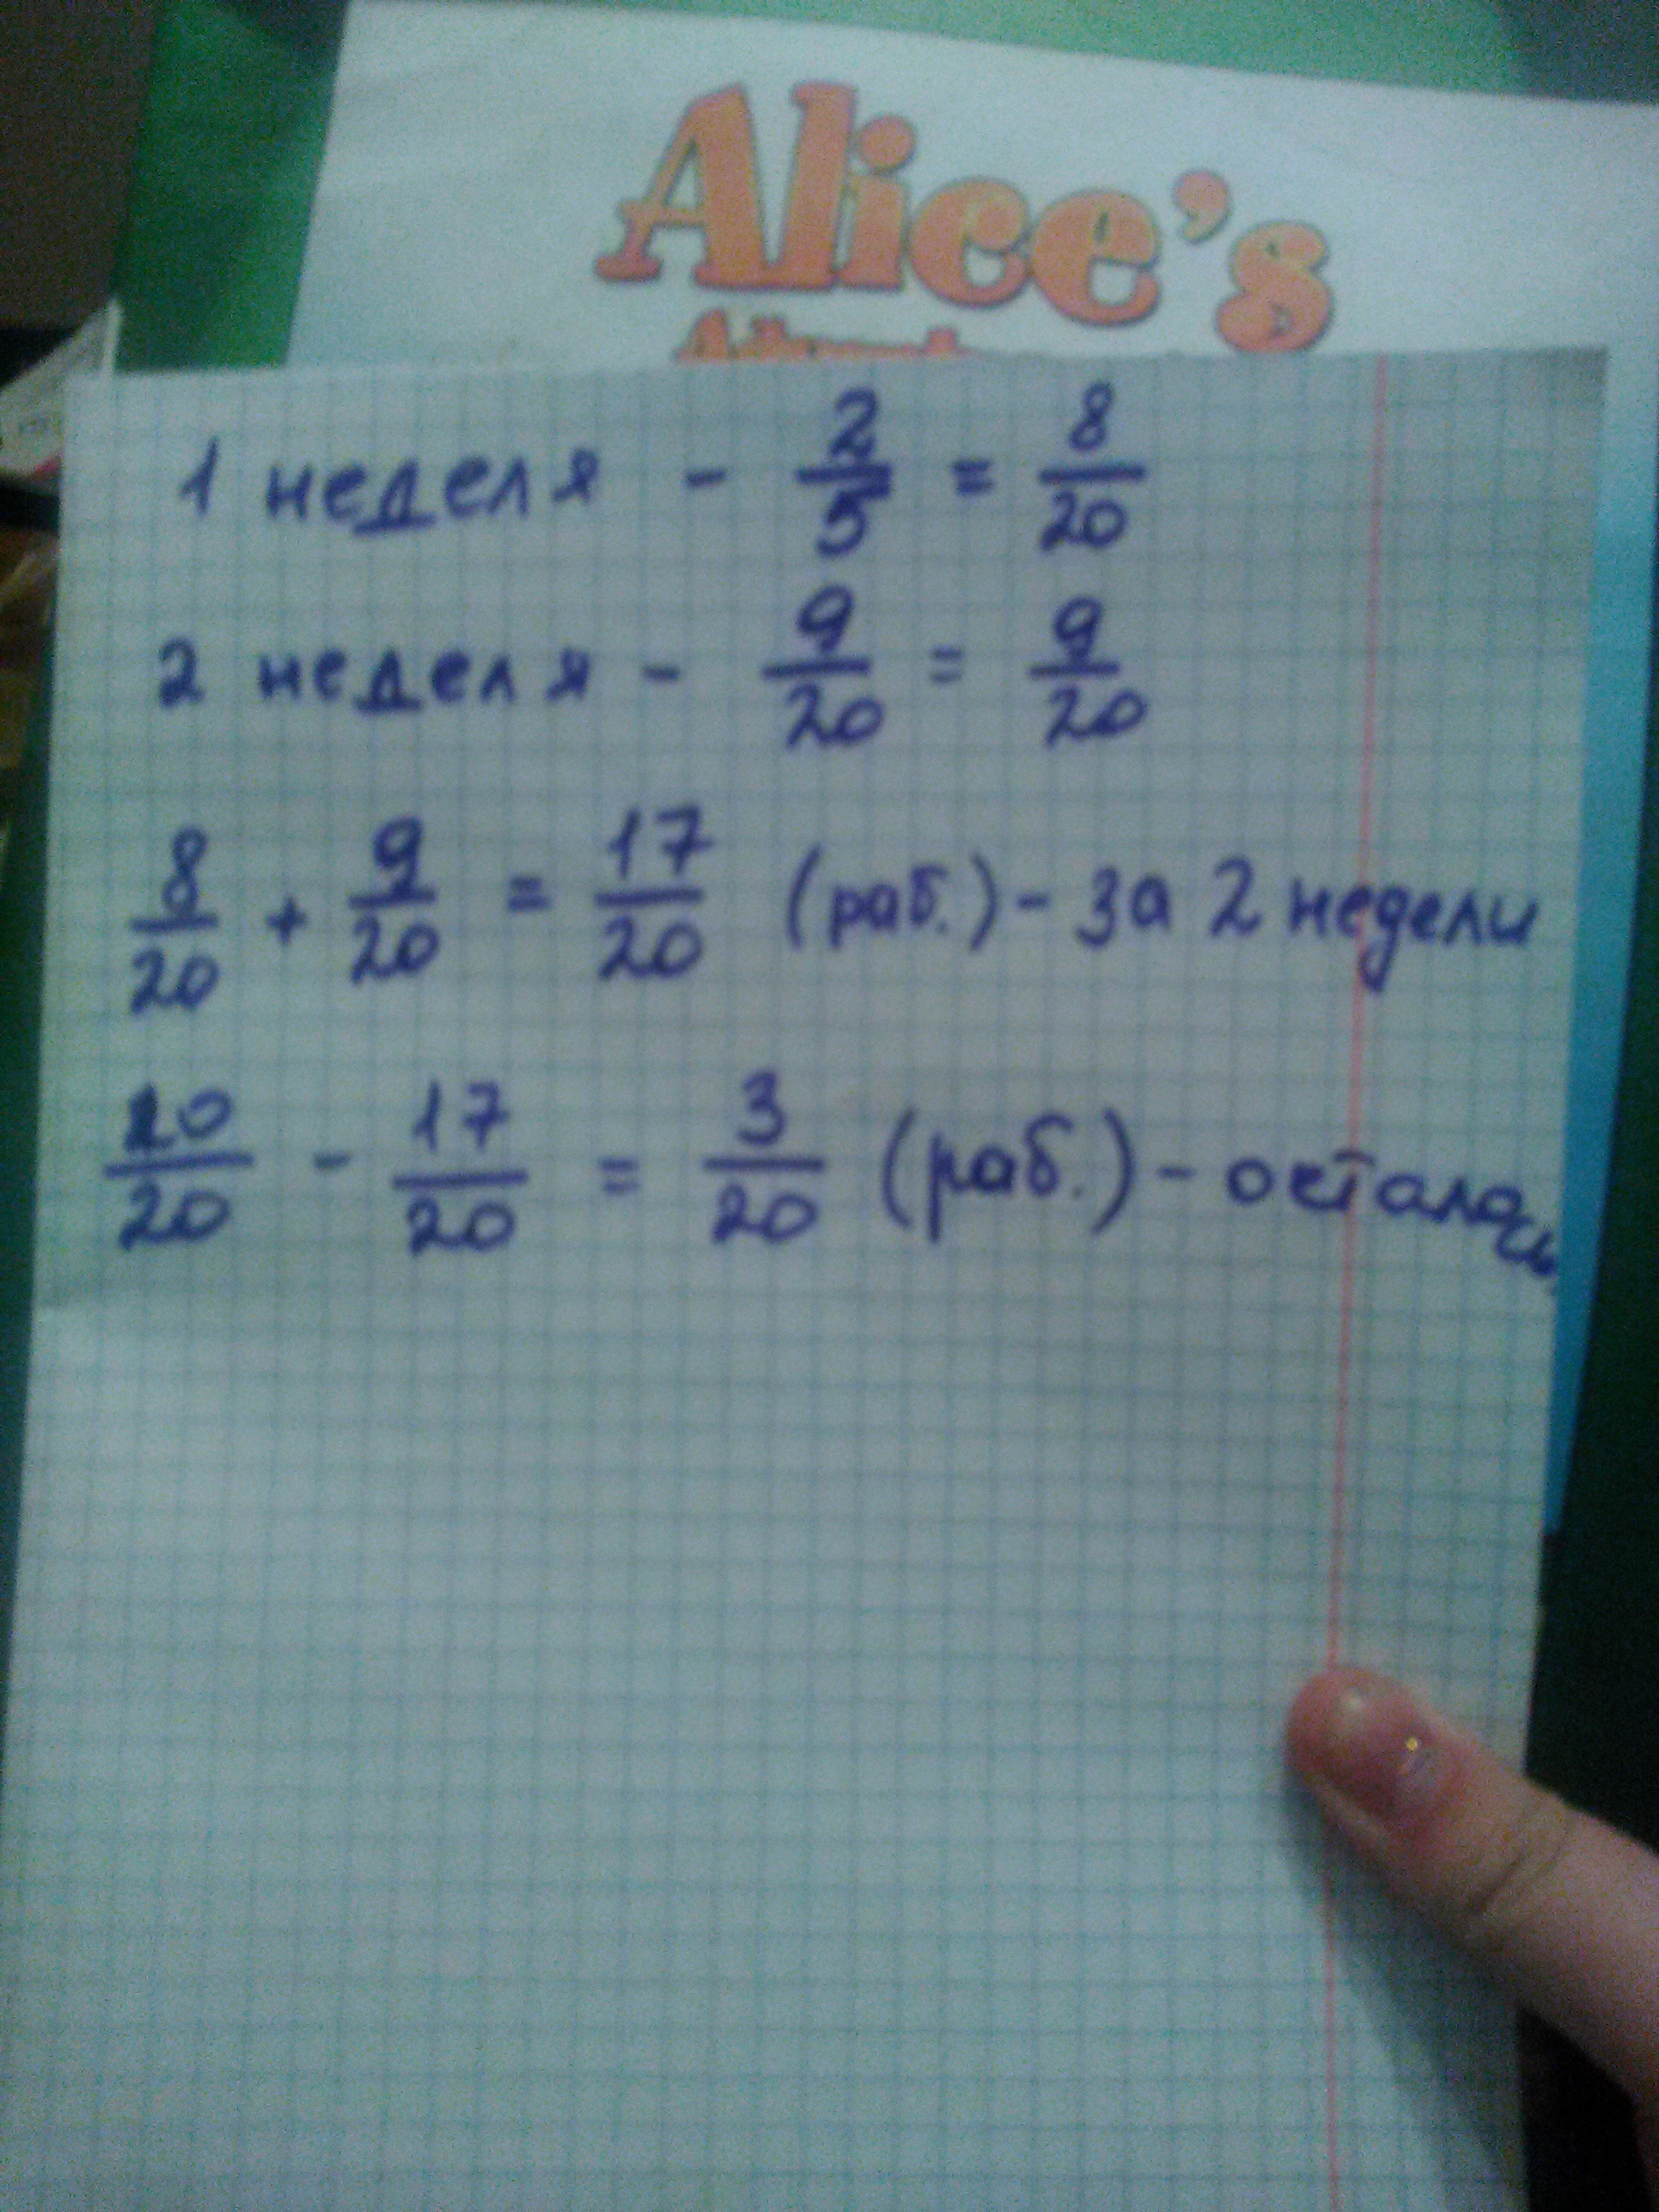 Alice's
1 неделя - 2/5 = 8/20
2 неделя - 9/20 = 9/20
8/20 + 9/20 = 17/20 (раб.) - за 2 недели
20/20 - 17/20 = 3/20 (раб.) - осталось